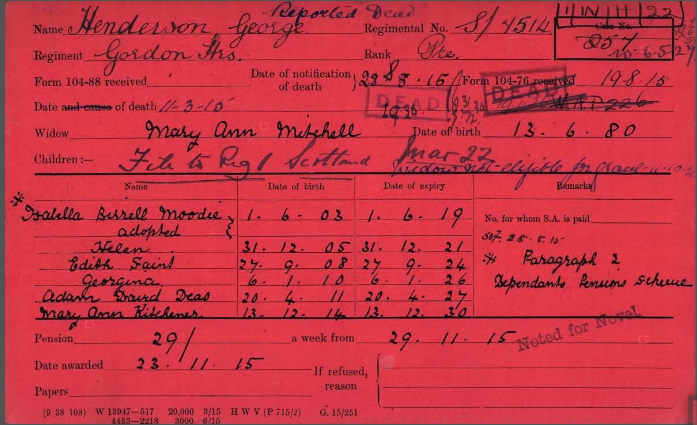 Reported Dead
1 W H 22
Name Henderson, George Regimental No. S/4514 Case No.
Regiment Gordon Hrs. Rank Pte.
Form 104-88 received Date of notification of death 28 8. 15 Form 104-76 received 19 8 15
DEAD DEAD
Date and cause of death 11-3-15
Widow Mary Ann Mitchell Date of birth 13. 6. 80
Children:— File to Reg Scotland Mar 22
Widow not eligible for
Name Date of birth Date of expiry Remarks
※ Isabella Birrell Moodie 1. 6. 03 1. 6. 19 No. for whom S.A. is paid
adopted
Helen 31. 12. 05 31. 12. 21
Edith Saint 27. 9. 08 27 9. 24 ※ Paragraph 2
Georgina 6. 1. 10 6. 1. 26 Dependants Pensions Scheme
Adam Baird Deas 20. 4. 11 20. 4. 27
Mary Ann Kitchener 13. 12. 14 13. 12. 30
Pension 29/ a week from 29. 11. 15 Noted for Novel
Date awarded 23. 11. 15 If refused, reason
Papers
(9 38 108) W 13947—517 20,000 3/15 H W V (P 715/2) G. 15/251
4483—2218 3000 6/15